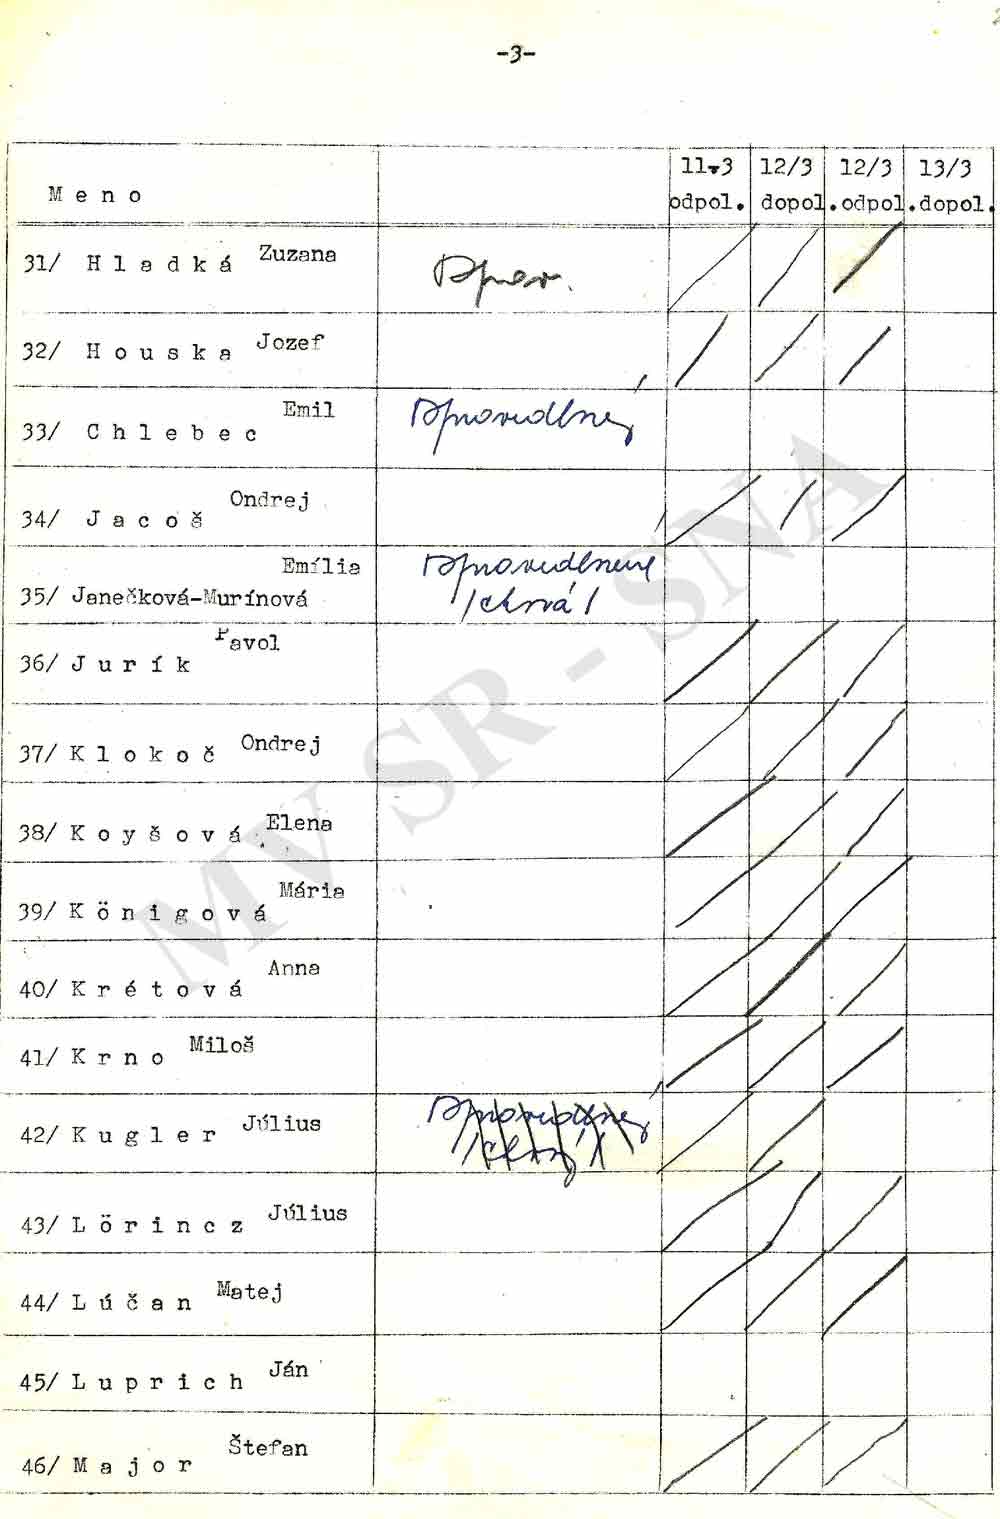 -3-
11.3 12/3 12/3 13/3
M e n o
odpol. dopol. odpol. dopol.
31/ H l a d k á Zuzana Osprav.
32/ H o u s k a Jozef
33/ C h l e b e c Emil Ospravedlnený
34/ J a c o š Ondrej
35/ Janečková-Murínová Emília Ospravedlnená
/chorá/
36/ J u r í k Pavol
37/ K l o k o č Ondrej
38/ K o y š o v á Elena
39/ K ö n i g o v á Mária
40/ K r é t o v á Anna
41/ K r n o Miloš
42/ K u g l e r Július Ospravedlnený
/chorý/
43/ L ö r i n c z Július
44/ L ú č a n Matej
45/ L u p r i c h Ján
46/ M a j o r Štefan
MV SR - SNA